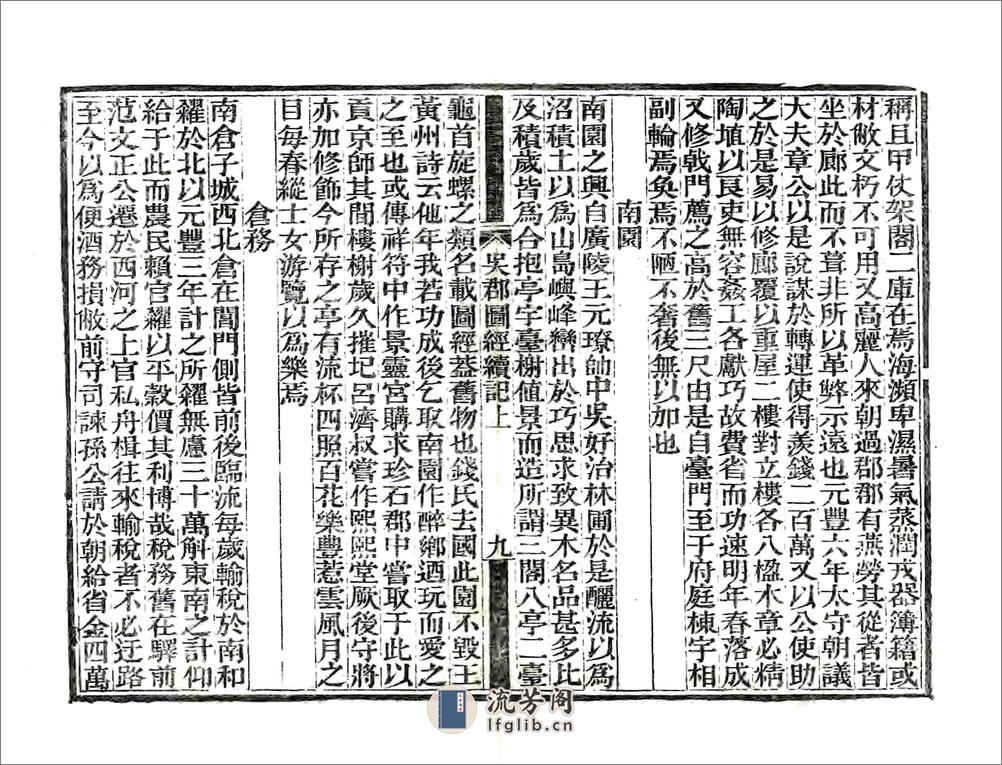 稱且甲仗架閣二庫在焉海瀕卑濕暑氣蒸潤戎器簿籍或
材敝文朽不可用又高麗人來朝過郡郡有燕勞其從者皆
坐於廊此而不葺非所以革弊示遠也元豐六年太守朝議
大夫章公以是說謀於轉運使得羨錢二百萬又以公使助
之於是易以修廊覆以重屋二樓對立樓各八楹木章必精
陶埴以良吏無容姦工各獻巧故費省而功速明年春落成
又修戟門薦之高於舊三尺由是自臺門至于府庭棟宇相
副輪焉奐焉不陋不奢後無以加也
南園
南園之興自廣陵王元璙帥中吳好治林圃於是釃流以爲
沼積土以爲山島嶼峰巒出於巧思求致異木名品甚多比
及積歲皆爲合抱亭宇臺榭值景而造所謂三閣八亭二臺
吳郡圖經續記上
九
龜首旋螺之類名載圖經蓋舊物也錢氏去國此園不毀王
黃州詩云他年我若功成後乞取南園作醉鄉迺玩而愛之
之至也或傳祥符中作景靈宮購求珍石郡中嘗取于此以
貢京師其間樓榭歲久摧圮呂濟叔嘗作熙熙堂厥後守將
亦加修飾今所存之亭有流杯四照百花樂豐惹雲風月之
目每春縱士女游覽以爲樂焉
倉務
南倉子城西北倉在閶門側皆前後臨流每歲輸稅於南和
糴於北以元豐三年計之所糴無慮三十萬斛東南之計仰
給于此而農民賴官糴以平穀價其利博哉稅務舊在驛前
范文正公遷於西河之上官私舟楫往來輸稅者不必迂路
至今以爲便酒務損敝前守司諫孫公請於朝給省金四萬
流芳阁
lfglib.cn